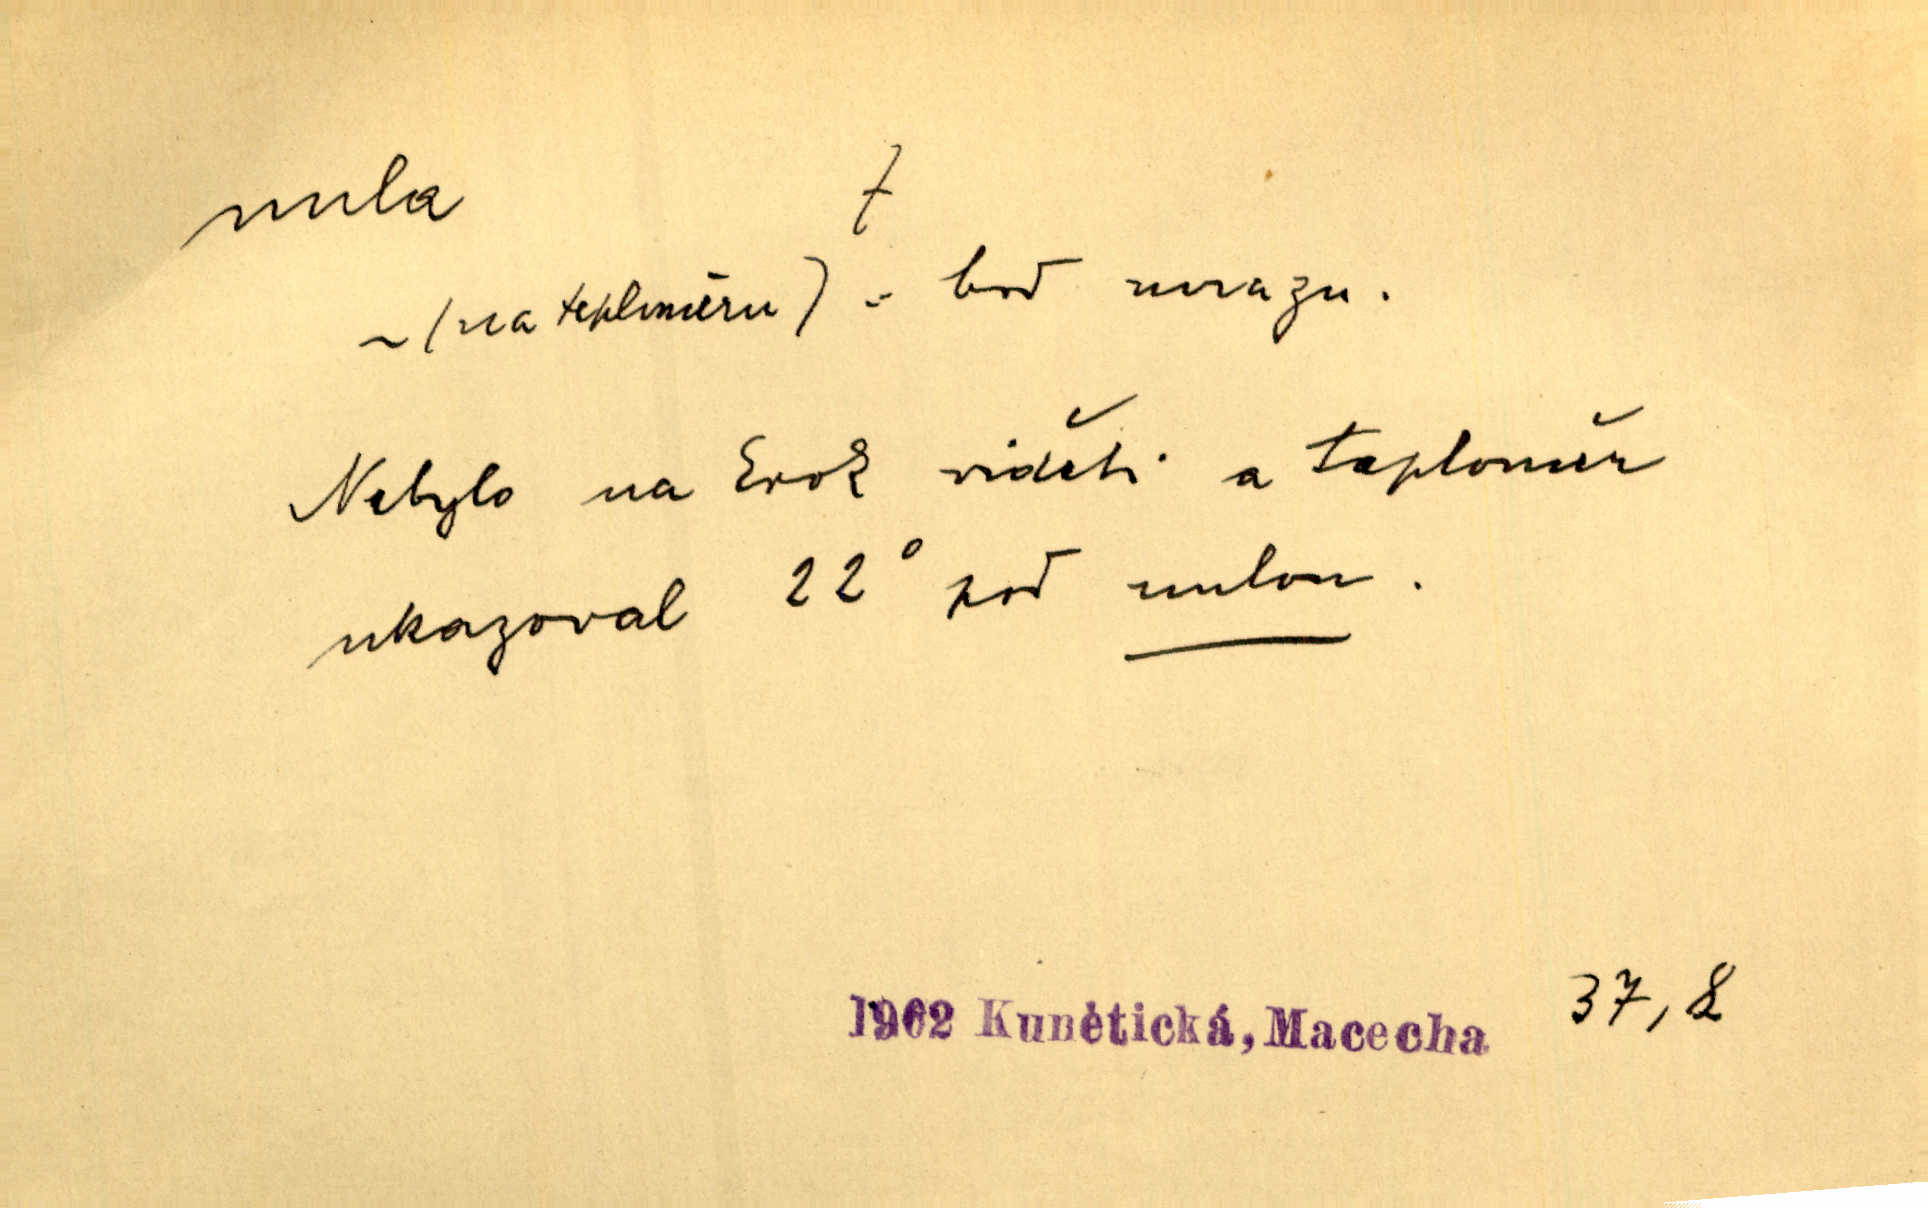 nula f
~ (na teploměru) = bod mrazu.
Nebylo na krok viděti a teploměr
ukazoval 22° pod nulou.
1902 Kunětická, Macecha 37,8